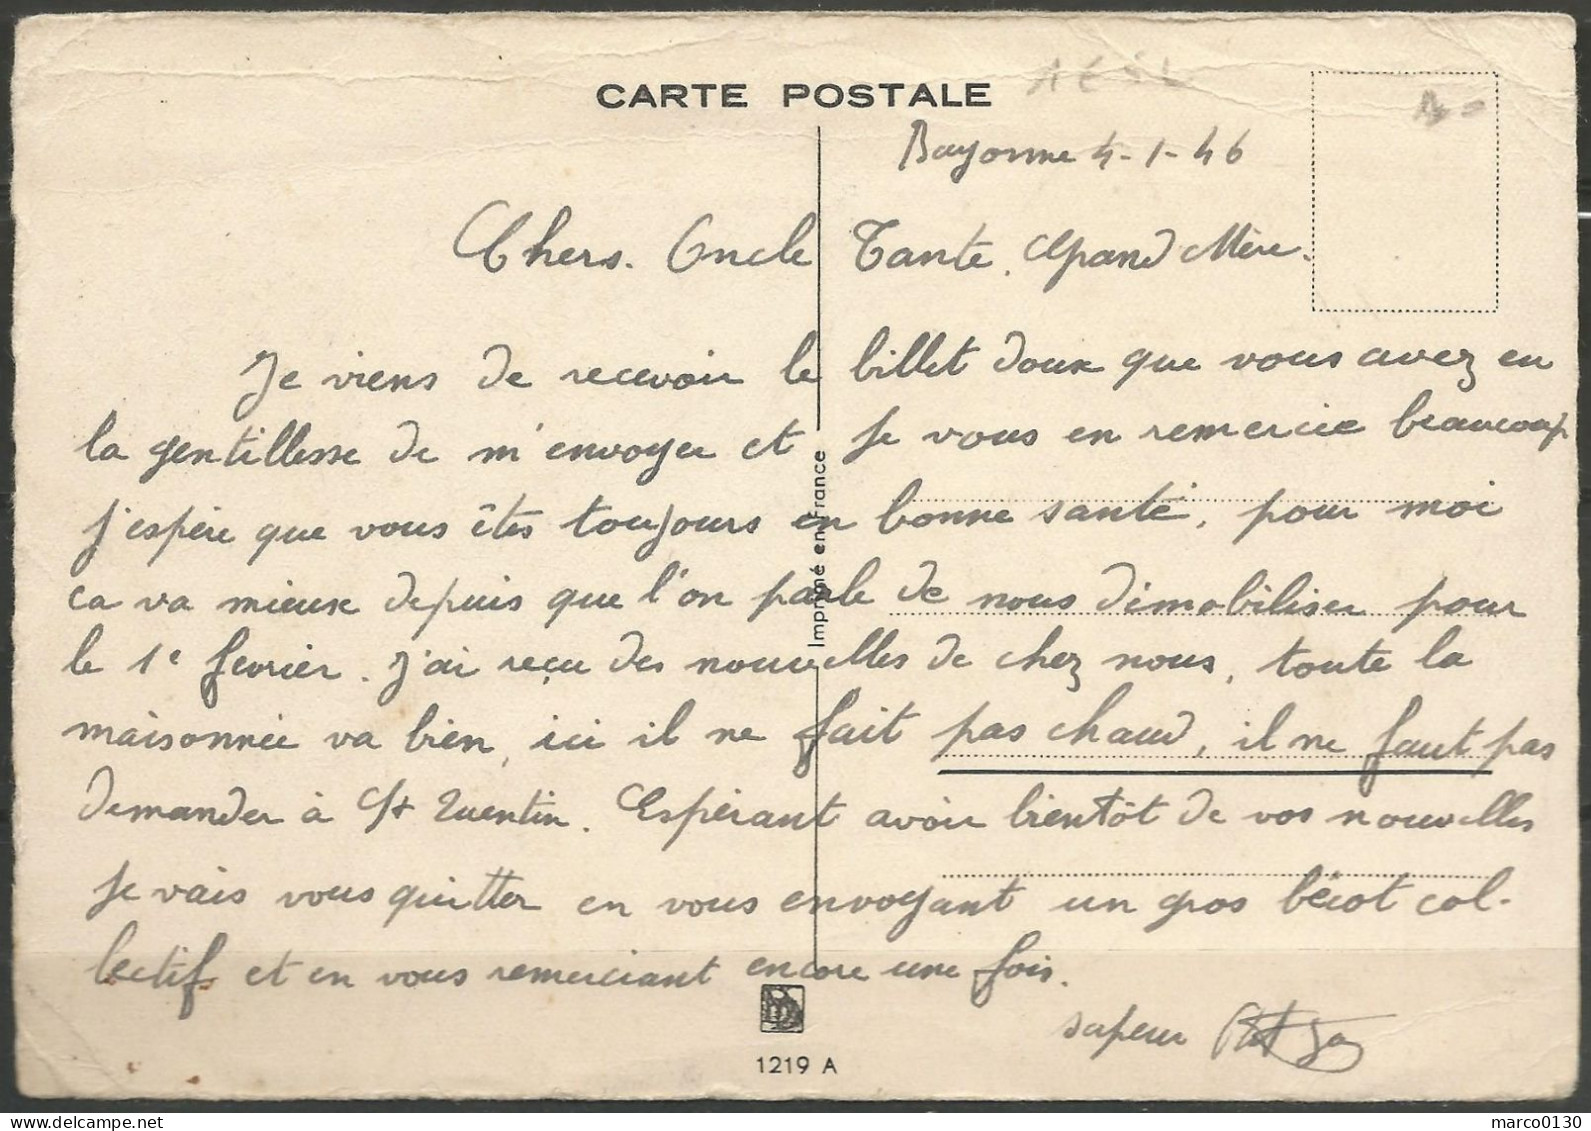 CARTE POSTALE
Bayonne 4-1-46
Chers. Oncle Tante. Grand Mère.
Je viens de recevoir le billet doux que vous avez eu
la gentillesse de m'envoyer et je vous en remercie beaucoup
j'espère que vous êtes toujours en bonne santé, pour moi
ça va mieux depuis que l'on parle de nous démobiliser pour
le 1e février. J'ai reçu des nouvelles de chez nous, toute la
maisonnée va bien, ici il ne fait pas chaud, il ne faut pas
demander à St Quentin. Espérant avoir bientôt de vos nouvelles
je vais vous quitter en vous envoyant un gros bécot col-
lectif et en vous remerciant encore une fois.
sapeur
Imprimé en France
1219 A
marco0130